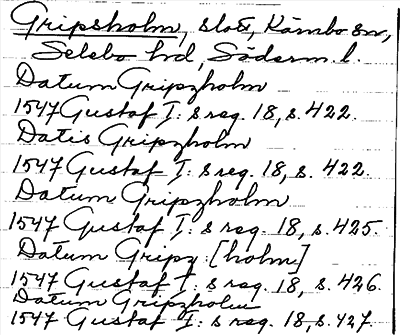 Gripsholm, slott, Kärnbo sn,
Selebo hd, Söderm. l.
Datum Gripzholm
1547 Gustaf I: s reg. 18, s. 422.
Datis Gripzholm
1547 Gustaf I: s reg. 18, s. 422.
Datum Gripzholm
1547 Gustaf I: s reg. 18, s. 425.
Datum Gripz [holm]
1547 Gustaf I: s reg. 18, s. 426.
Datum Gripzholm
1547 Gustaf I: s reg. 18, s. 427.